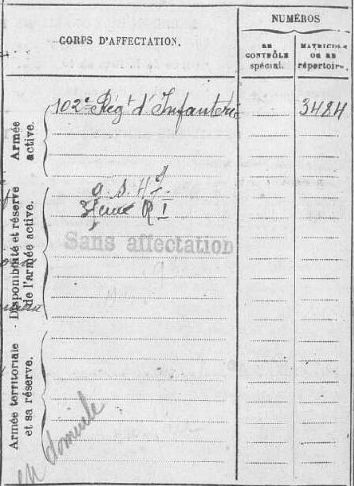 NUMÉROS
CORPS D'AFFECTATION.
DE CONTRÔLE spécial.
MATRICULE OU AU répertoire.
Armée active.
102e Régt d'Infanterie
3484
Disponibilité et réserve de l'armée active.
R I
Sans affectation
Armée territoriale et sa réserve.
domicile